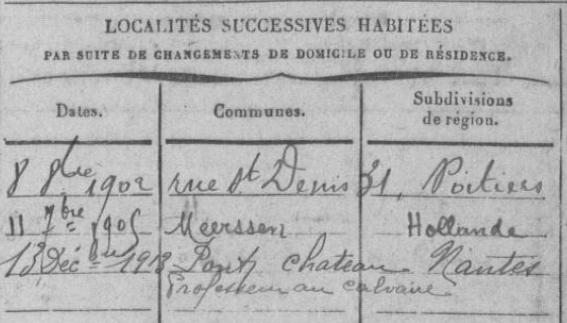 LOCALITÉS SUCCESSIVES HABITÉES
PAR SUITE DE CHANGEMENTS DE DOMICILE OU DE RÉSIDENCE.
Dates. Communes. Subdivisions de région.
8 8bre 1902 rue St Denis 31, Poitiers
11 7bre 1905 Meerssen Hollande
13 Décbre 1913 Pont chateau Nantes
Professeur au calvaire